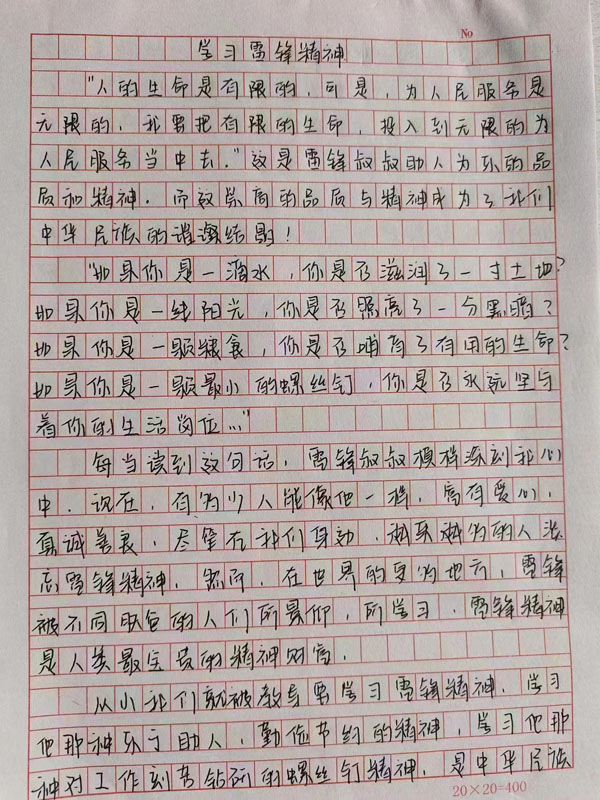 No
学习雷锋精神
“人的生命是有限的，可是，为人民服务是
无限的，我要把有限的生命，投入到无限的为
人民服务当中去。”这是雷锋叔叔助人为乐的品
质和精神．而这崇高的品质与精神成为了我们
中华民族的道德结晶！
“如果你是一滴水，你是否滋润了一寸土地？
如果你是一线阳光，你是否照亮了一分黑暗？
如果你是一颗粮食，你是否哺育了有用的生命？
如果你是一颗最小的螺丝钉，你是否永远坚守
着你的生活岗位…”
每当读到这句话，雷锋叔叔模样深刻我心
中．现在，有多少人能像他一样，富有爱心，
真诚善良．尽管在我们身边，越来越多的人淡
忘雷锋精神．然而，在世界的更多地方，雷锋
被不同肤色的人们所景仰，所学习．雷锋精神
是人类最宝贵的精神财富．
从小我们就被教导要学习雷锋精神．学习
他那种乐于助人，勤俭节约的精神，学习他那
种对工作刻苦钻研的螺丝钉精神．是中华民族
20×20=400